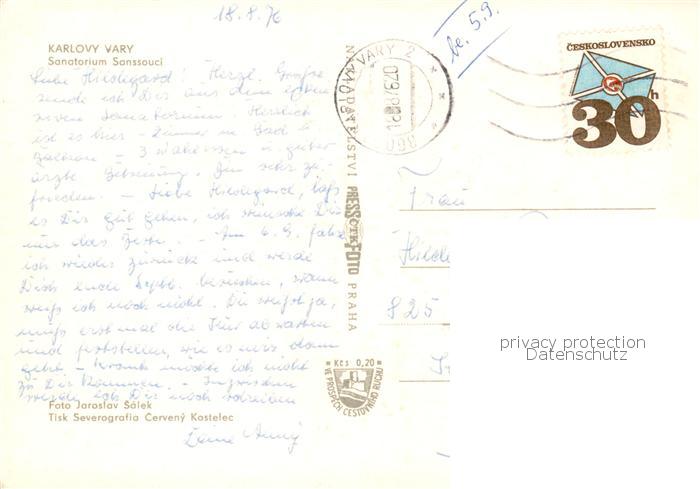 18.8.76
KARLOVY VARY
Sanatorium Sanssouci
Liebe Hildegard! Herzl. Grüße
sende ich Dir aus dem
Sanatorium. Herrlich
ist es hier - Zimmer m. Bad u.
Balkon - 3 Mahlzeiten u. guter
ärztl. Betreuung. Bin sehr zu-
frieden. - Liebe Hildegard, laß
es Dir gut gehen, ich wünsche Dir
nur das Beste. - Am 6.9. fahre
ich wieder zurück und werde
Dich Ende Septb. besuchen, wann
weiß ich noch nicht. Du weißt ja,
muß erst mal die Kur abwarten
und feststellen, wie es mir dann
geht. - Krank möchte ich nicht
zu Dir kommen. - Inzwischen
werde ich Dir noch schreiben
Deine
Foto Jaroslav Šálek
Tisk Severografia Červený Kostelec
NAKLADATELSTVÍ PRESSFOTO PRAHA
ČTK
Kčs 0,20
VE PROSPĚCH CESTOVNÍHO RUCHU
VARY 2
be. 5.9.
ČESKOSLOVENSKO
30 h
Frau
825
privacy protection
Datenschutz